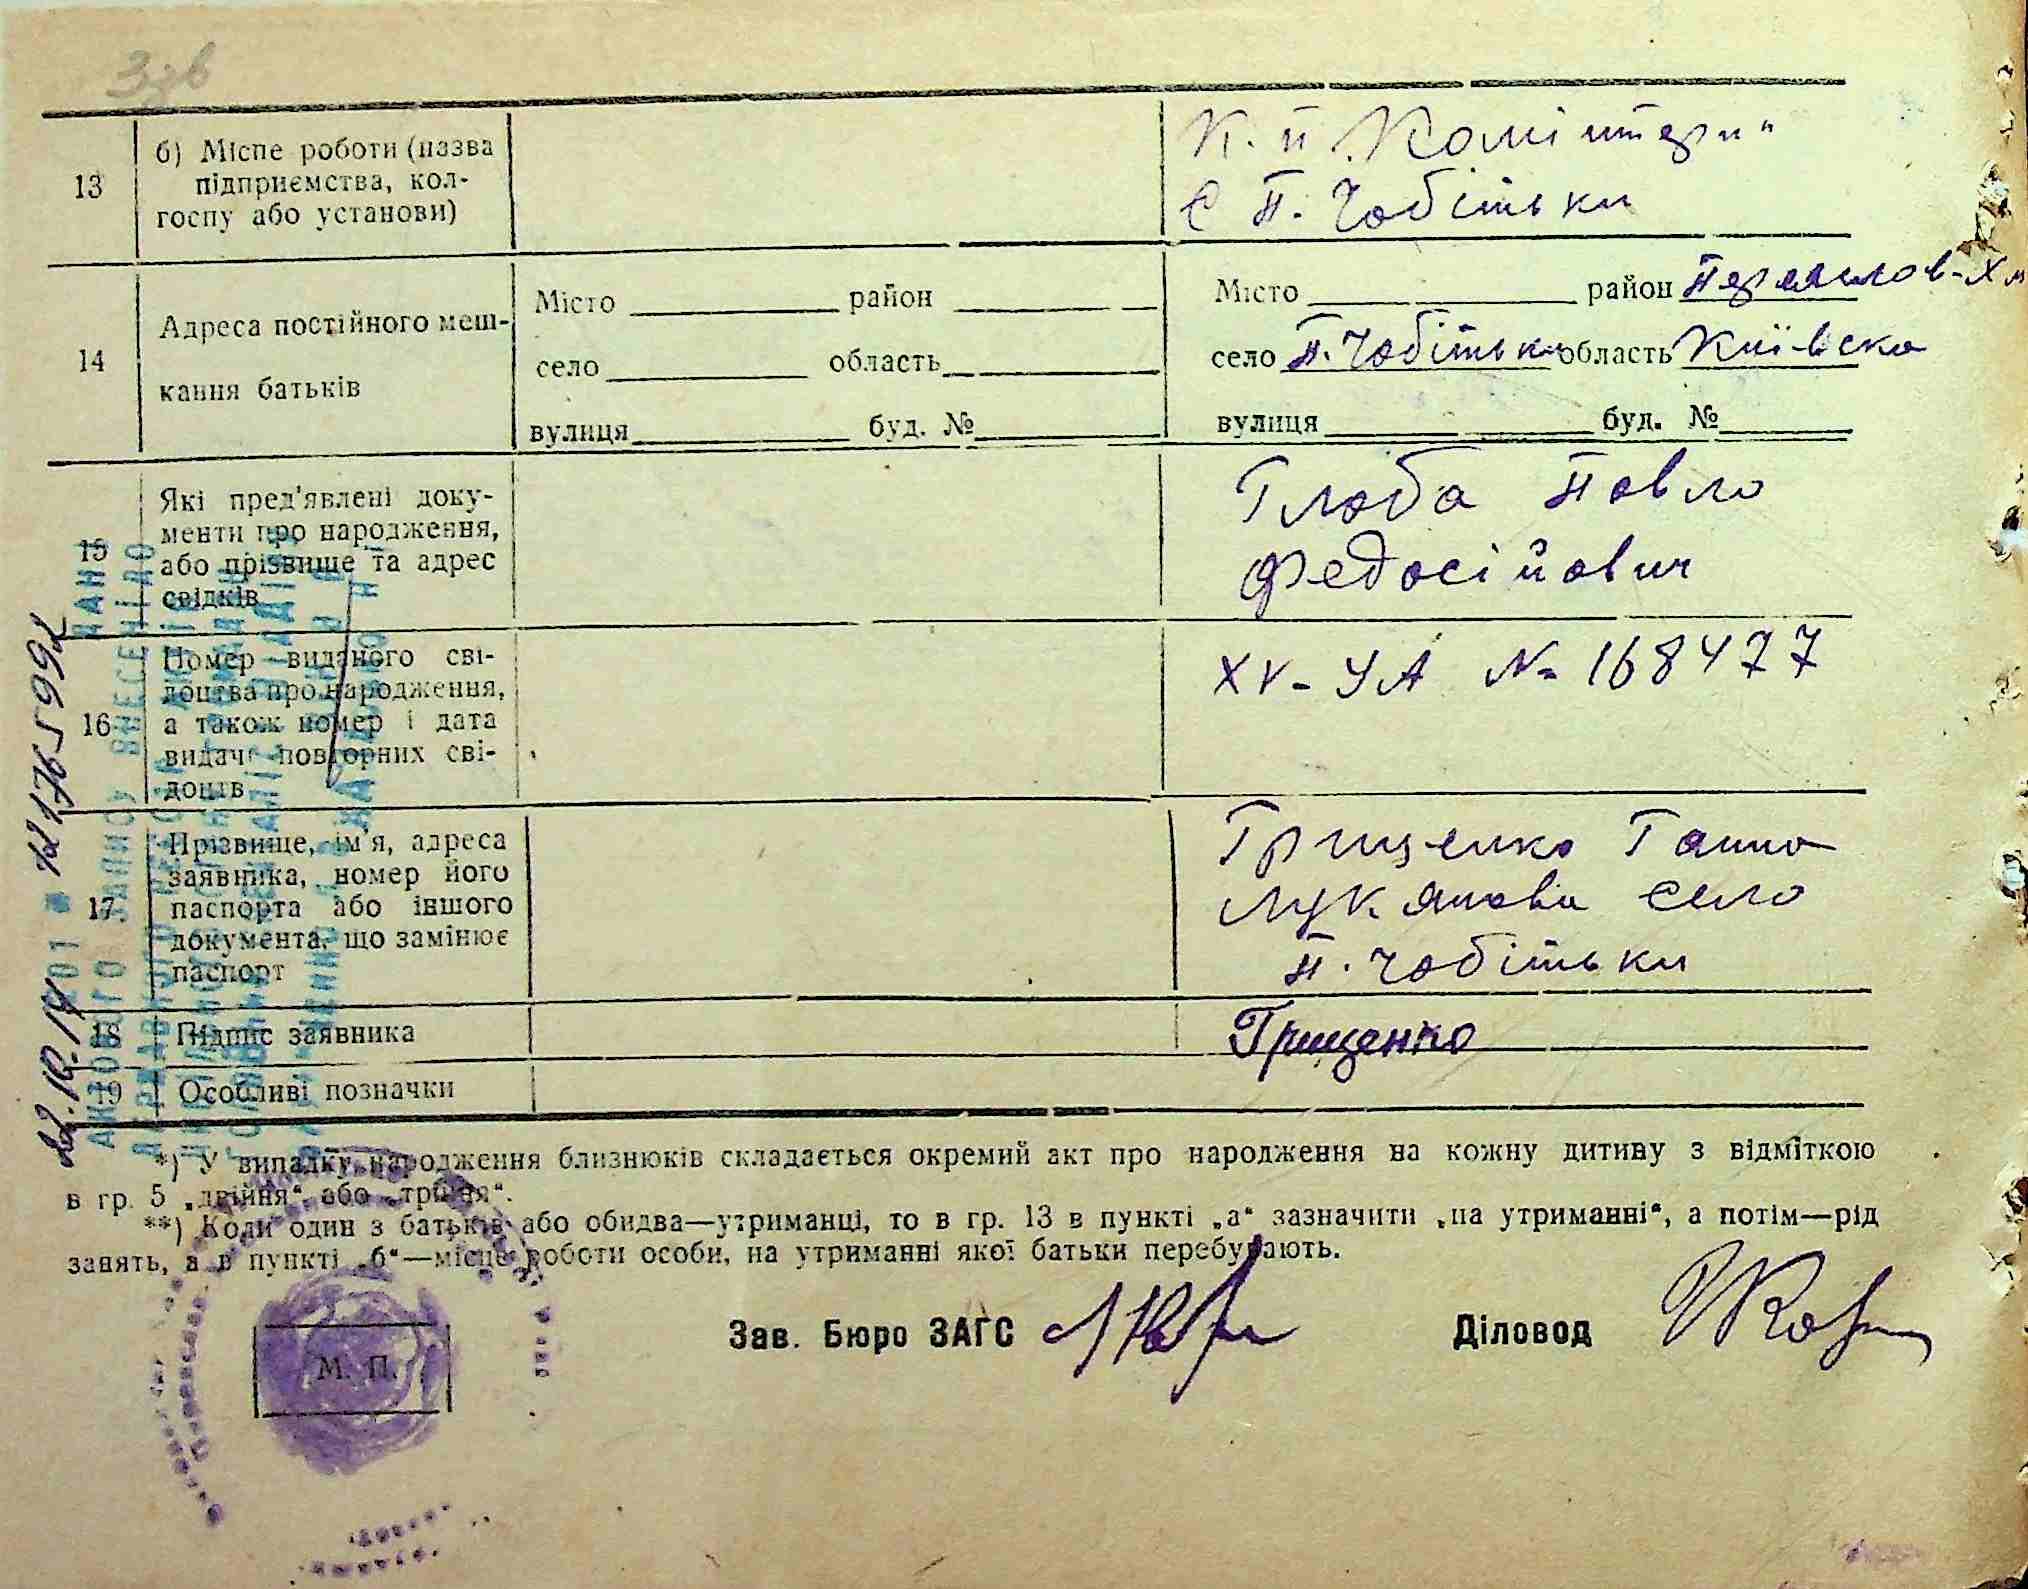 13
б) Місце роботи (назва
підприємства, кол-
госпу або установи)
К. П. „Комінтерн"
с П. Чобітьки
14
Адреса постійного меш-
кання батьків
Місто район
село область
вулиця буд. №
Місто район Переяслов-Хм
село П. Чобітьки область Київска
вулиця буд. №
15
Які пред'явлені доку-
менти про народження,
або прізвище та адрес
свідків
Глоба Павло
Федосійович
16
Номер виданого сві-
доцтва про народження,
а також номер і дата
видачі повторних сві-
доцтв
XV-УА № 168477
17.
Прізвище, ім'я, адреса
заявника, номер його
паспорта або іншого
документа, що замінює
паспорт
Грищенко Ганна
Лук яновна село
П. Чобітьки
18
Підпис заявника
Грищенко
19
Особливі позначки
*) У випадку народження близнюків складається окремий акт про народження на кожну дитину з відміткою
в гр. 5 „двійня“ або „трійня“.
**) Коли один з батьків або обидва—утриманці, то в гр. 13 в пункті „а“ зазначити „на утриманні“, а потім—рід
занять, а в пункті „б“—місце роботи особи, на утриманні якої батьки перебувають.
М. П.
Зав. Бюро ЗАГС
Діловод